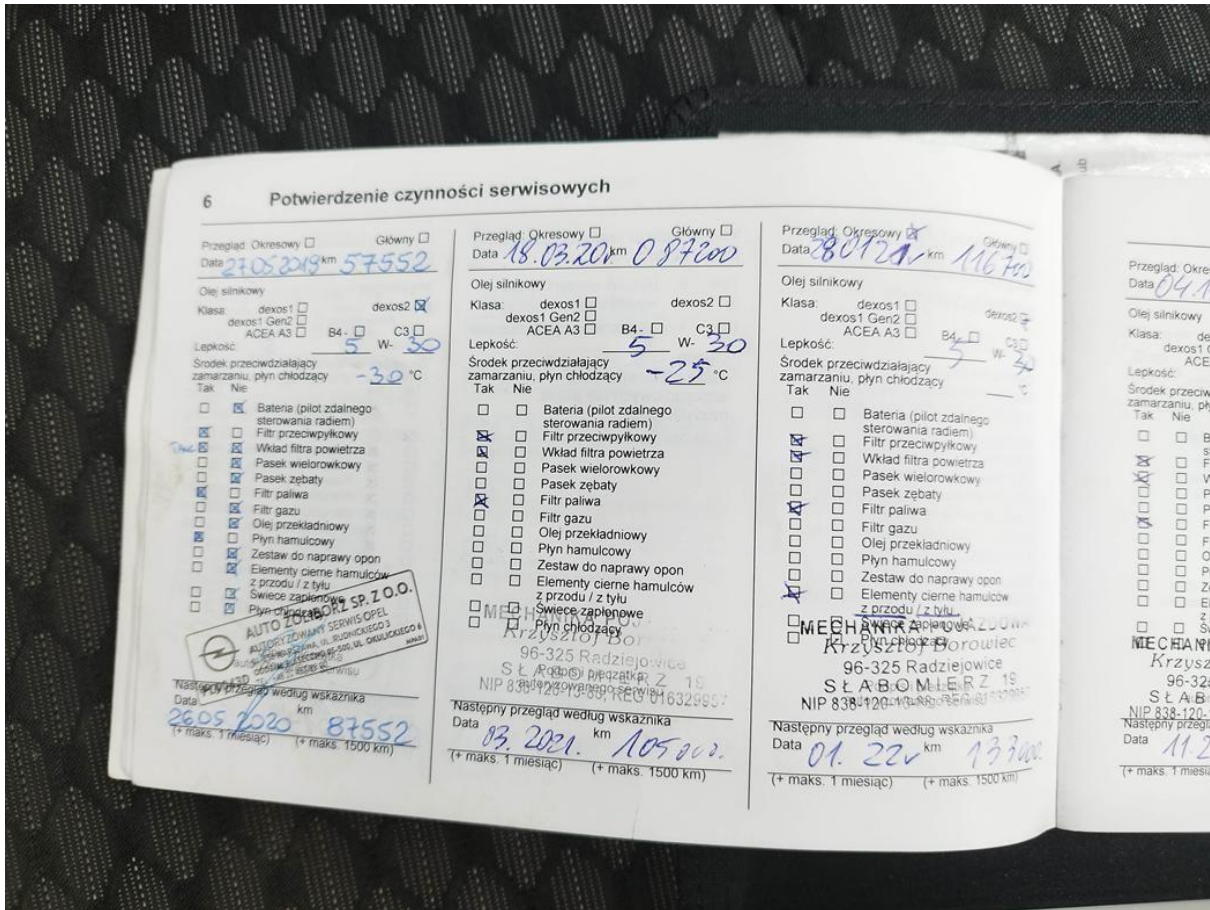 6 Potwierdzenie czynności serwisowych
Przegląd: Okresowy Główny
Data 27.05.2019 km 57552
Olej silnikowy
Klasa: dexos1 dexos2
dexos1 Gen2
ACEA A3 B4- C3
Lepkość: 5 W- 30
Środek przeciwdziałający
zamarzaniu, płyn chłodzący -30 °C
Tak Nie
Bateria (pilot zdalnego
sterowania radiem)
Filtr przeciwpyłkowy
Wkład filtra powietrza
Pasek wielorowkowy
Pasek zębaty
Filtr paliwa
Filtr gazu
Olej przekładniowy
Płyn hamulcowy
Zestaw do naprawy opon
Elementy cierne hamulców
z przodu / z tyłu
Świece zapłonowe
Płyn chłodzący
AUTO ŻOLIBORZ SP. Z O.O.
AUTORYZOWANY SERWIS OPEL
Następny przegląd według wskaźnika
Data km
26.05.2020 87552
(+ maks. 1 miesiąc) (+ maks. 1500 km)
Przegląd: Okresowy Główny
Data 18.03.20r km 087200
Olej silnikowy
Klasa: dexos1 dexos2
dexos1 Gen2
ACEA A3 B4- C3
Lepkość: 5 W- 30
Środek przeciwdziałający
zamarzaniu, płyn chłodzący -25 °C
Tak Nie
Bateria (pilot zdalnego
sterowania radiem)
Filtr przeciwpyłkowy
Wkład filtra powietrza
Pasek wielorowkowy
Pasek zębaty
Filtr paliwa
Filtr gazu
Olej przekładniowy
Płyn hamulcowy
Zestaw do naprawy opon
Elementy cierne hamulców
z przodu / z tyłu
Świece zapłonowe
Płyn chłodzący
MECHANIKA POJ
Krzysztof Bor
96-325 Radziejowice
Podpis i pieczątka
SŁABOMIERZ 19
autoryzowanego serwisu
Następny przegląd według wskaźnika
Data 03. 2021. km 105 000.
(+ maks. 1 miesiąc) (+ maks. 1500 km)
Przegląd: Okresowy Główny
Data 280121r km 116700
Olej silnikowy
Klasa: dexos1 dexos2
dexos1 Gen2
ACEA A3 B4- C3
Lepkość: 5 W- 30
Środek przeciwdziałający
zamarzaniu, płyn chłodzący °C
Tak Nie
Bateria (pilot zdalnego
sterowania radiem)
Filtr przeciwpyłkowy
Wkład filtra powietrza
Pasek wielorowkowy
Pasek zębaty
Filtr paliwa
Filtr gazu
Olej przekładniowy
Płyn hamulcowy
Zestaw do naprawy opon
Elementy cierne hamulców
z przodu / z tyłu
Świece zapłonowe
Płyn chłodzący
MECHANIKA POJAZDOWA
Krzysztof Borowiec
96-325 Radziejowice
SŁABOMIERZ 19
Następny przegląd według wskaźnika
Data 01. 22r km 133000.
(+ maks. 1 miesiąc) (+ maks. 1500 km)
Przegląd: Okre
Data 04.1
Olej silnikowy
Klasa: de
dexos1 G
ACE
Lepkość:
Środek przeciw
zamarzaniu, pł
Tak Nie
MECHANI
Krzysz
96-32
SŁAB
NIP 838-120-
Następny przegl
Data 11.2
(+ maks. 1 miesi